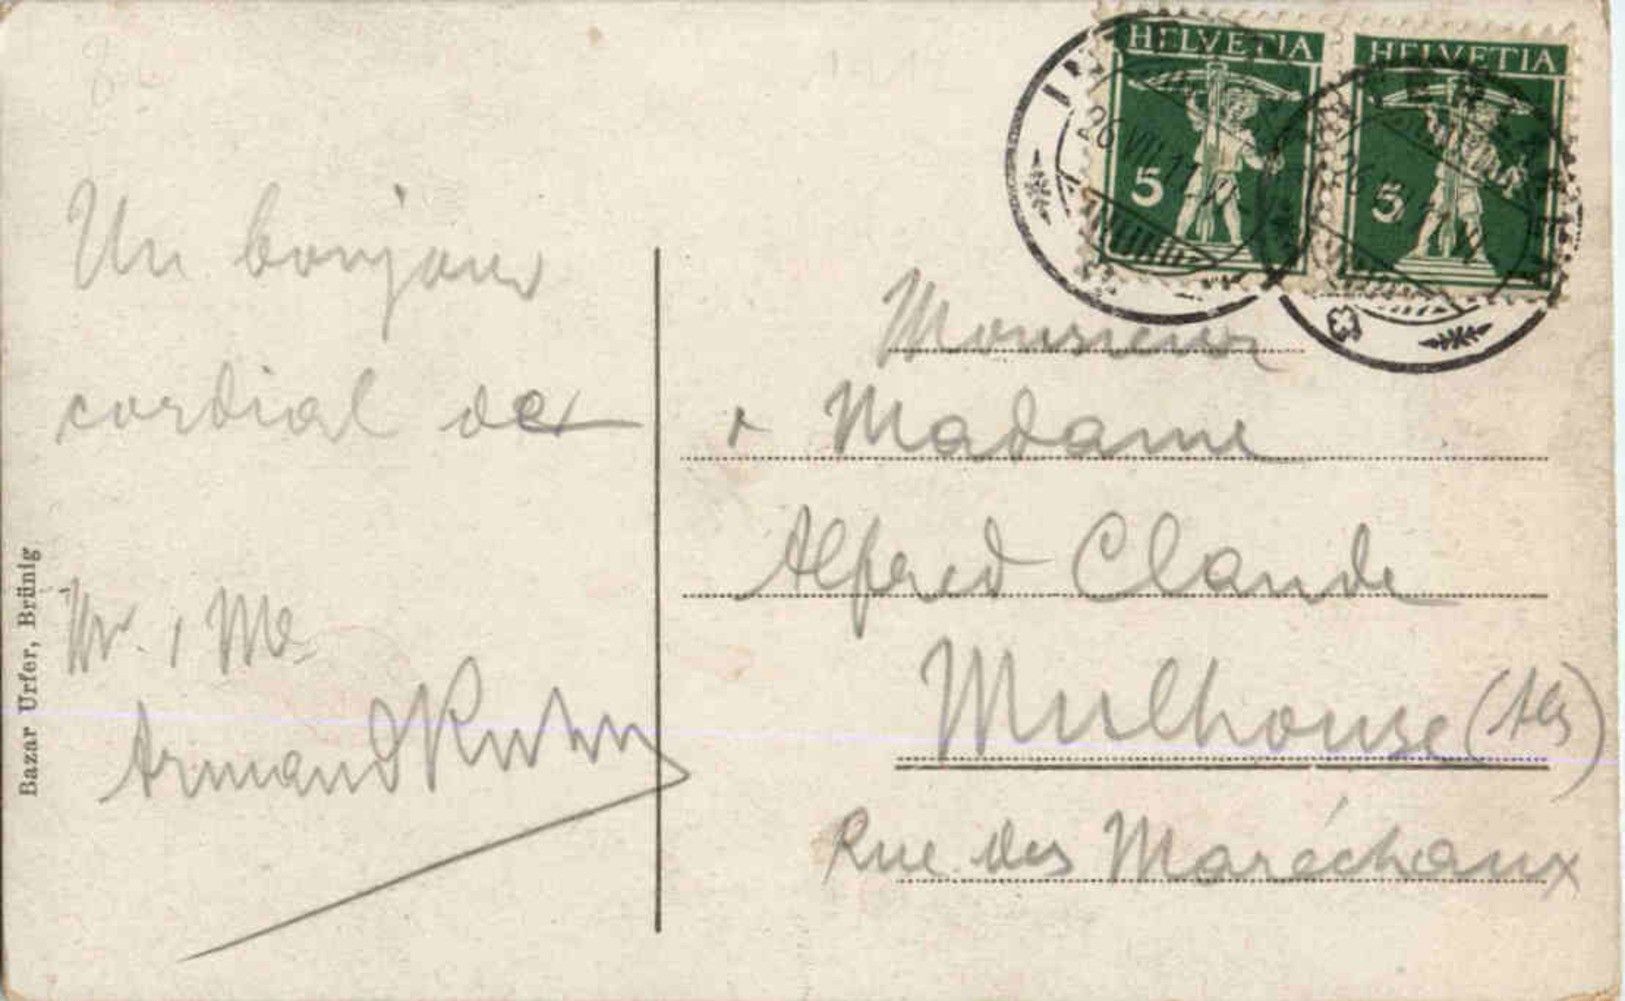 HELVETIA
5
HELVETIA
5
Un bonjour
cordial de
Mr. & Me
Armand
Bazar Urfer, Brünig
Monsieur
& Madame
Alfred Claude
Mulhouse (Als)
Rue des Maréchaux